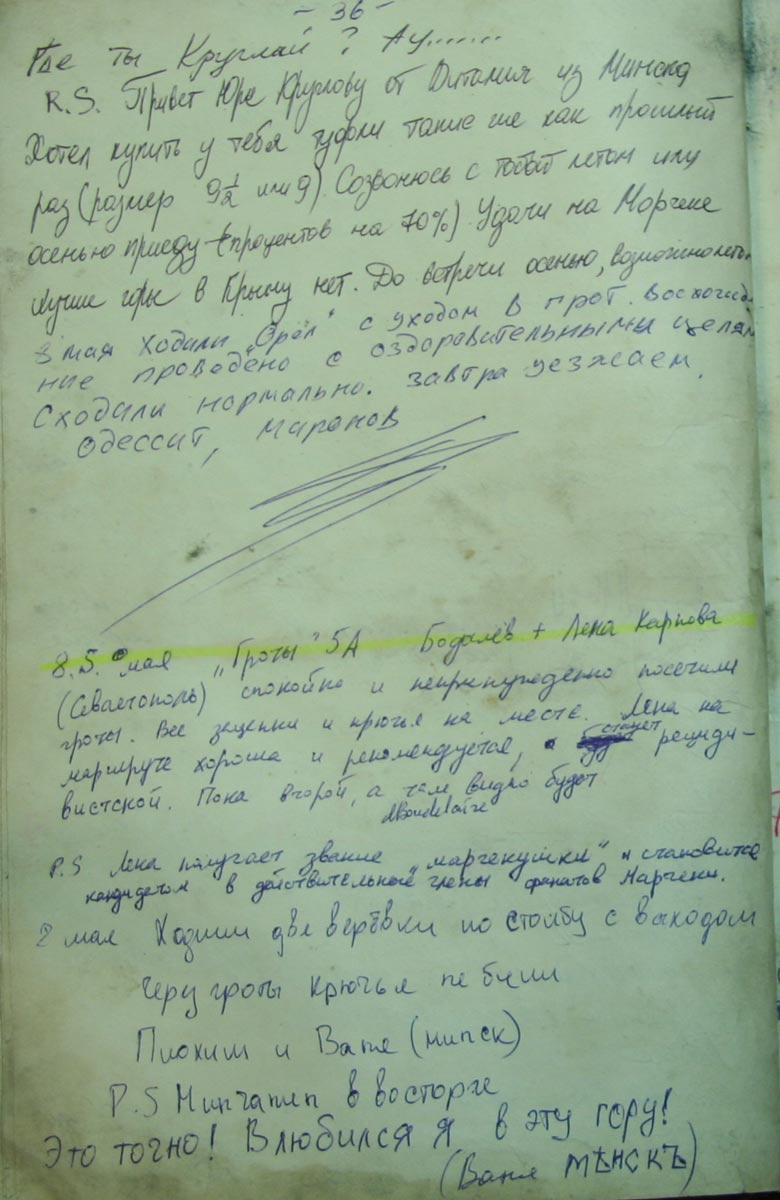 - 36 -
Где ты Круглай? Ау.......
R.S. Привет Юре Круглову от Виталия из Минска
Хотел купить у тебя туфли такие же как прошлый
раз (размер 9½ или 9) Созвонюсь с тобой летом или
осенью приеду (процентов на 70%) Удачи на Морчеке
лучше горы в Крыму нет. До встречи осенью, возможно летом
8 мая ходили „Орёл" с уходом в грот. Восхожде
ние проведено с оздоровительными целям
Сходили нормально. Завтра уезжаем.
Одессит, Миронов
8.5. мая „Гроты" 5А Бодалёв + Лена Карпова
(Севастополь) спокойно и непринуждённо посетили
гроты. Все зацепки и крючья на месте. Лена на
маршруте хороша и рекомендуется, станет рециди-
вистской. Пока второй, а там видно будет
P.S Лена получает звание „марчекушки" и становится
кандидатом в действительные члены фанатов Марчеки.
8 мая Ходили две верёвки по столбу с выходом
Через гроты крючья не били
и Ваня (минск)
P.S Минчанин в восторге
Это точно! Влюбился я в эту гору!
(Ваня МѢНСКЪ)